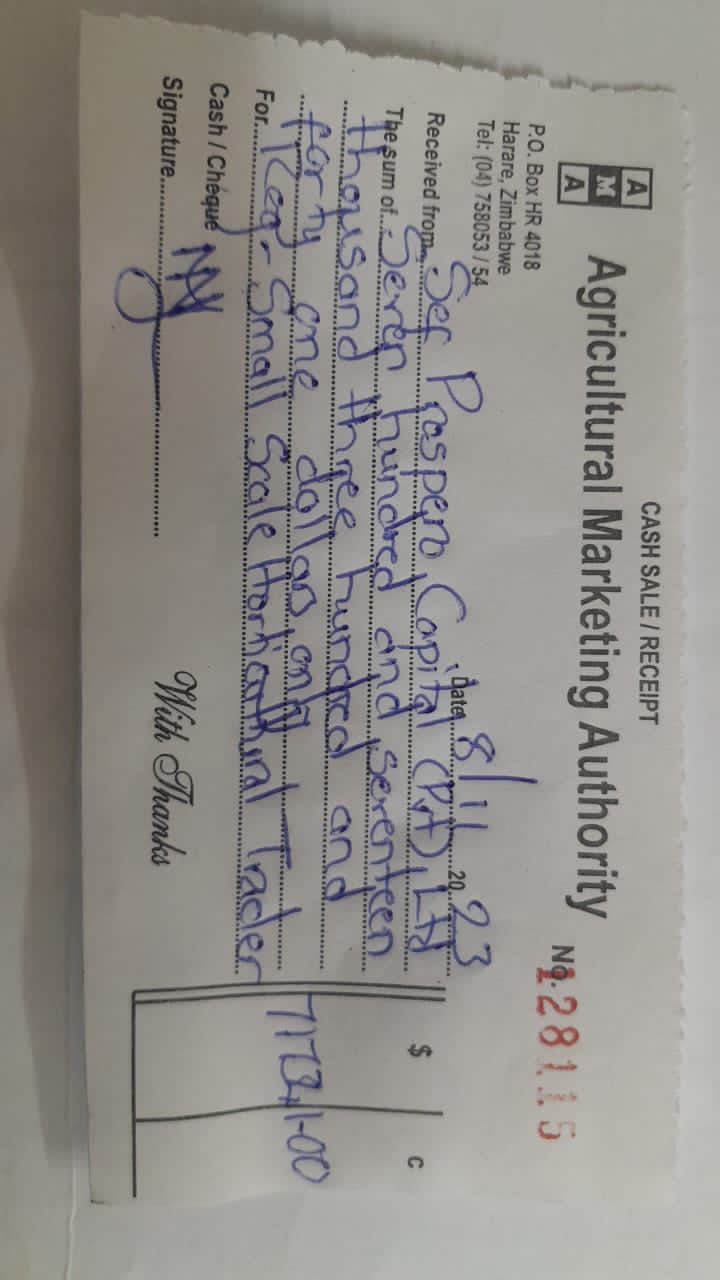 CASH SALE / RECEIPT
A M A
Agricultural Marketing Authority
No. 128115
P.O. Box HR 4018
Harare, Zimbabwe
Tel: (04) 758053 / 54
Date 8/11 20 23
Received from Sef Prospero Capital (Pvt) Ltd
The sum of Seven hundred and seventeen
thousand three hundred and
forty one dollars only
For Reg - Small Scale Horticultural Trader
$ C
717341-00
Cash / Cheque
Signature
With Thanks